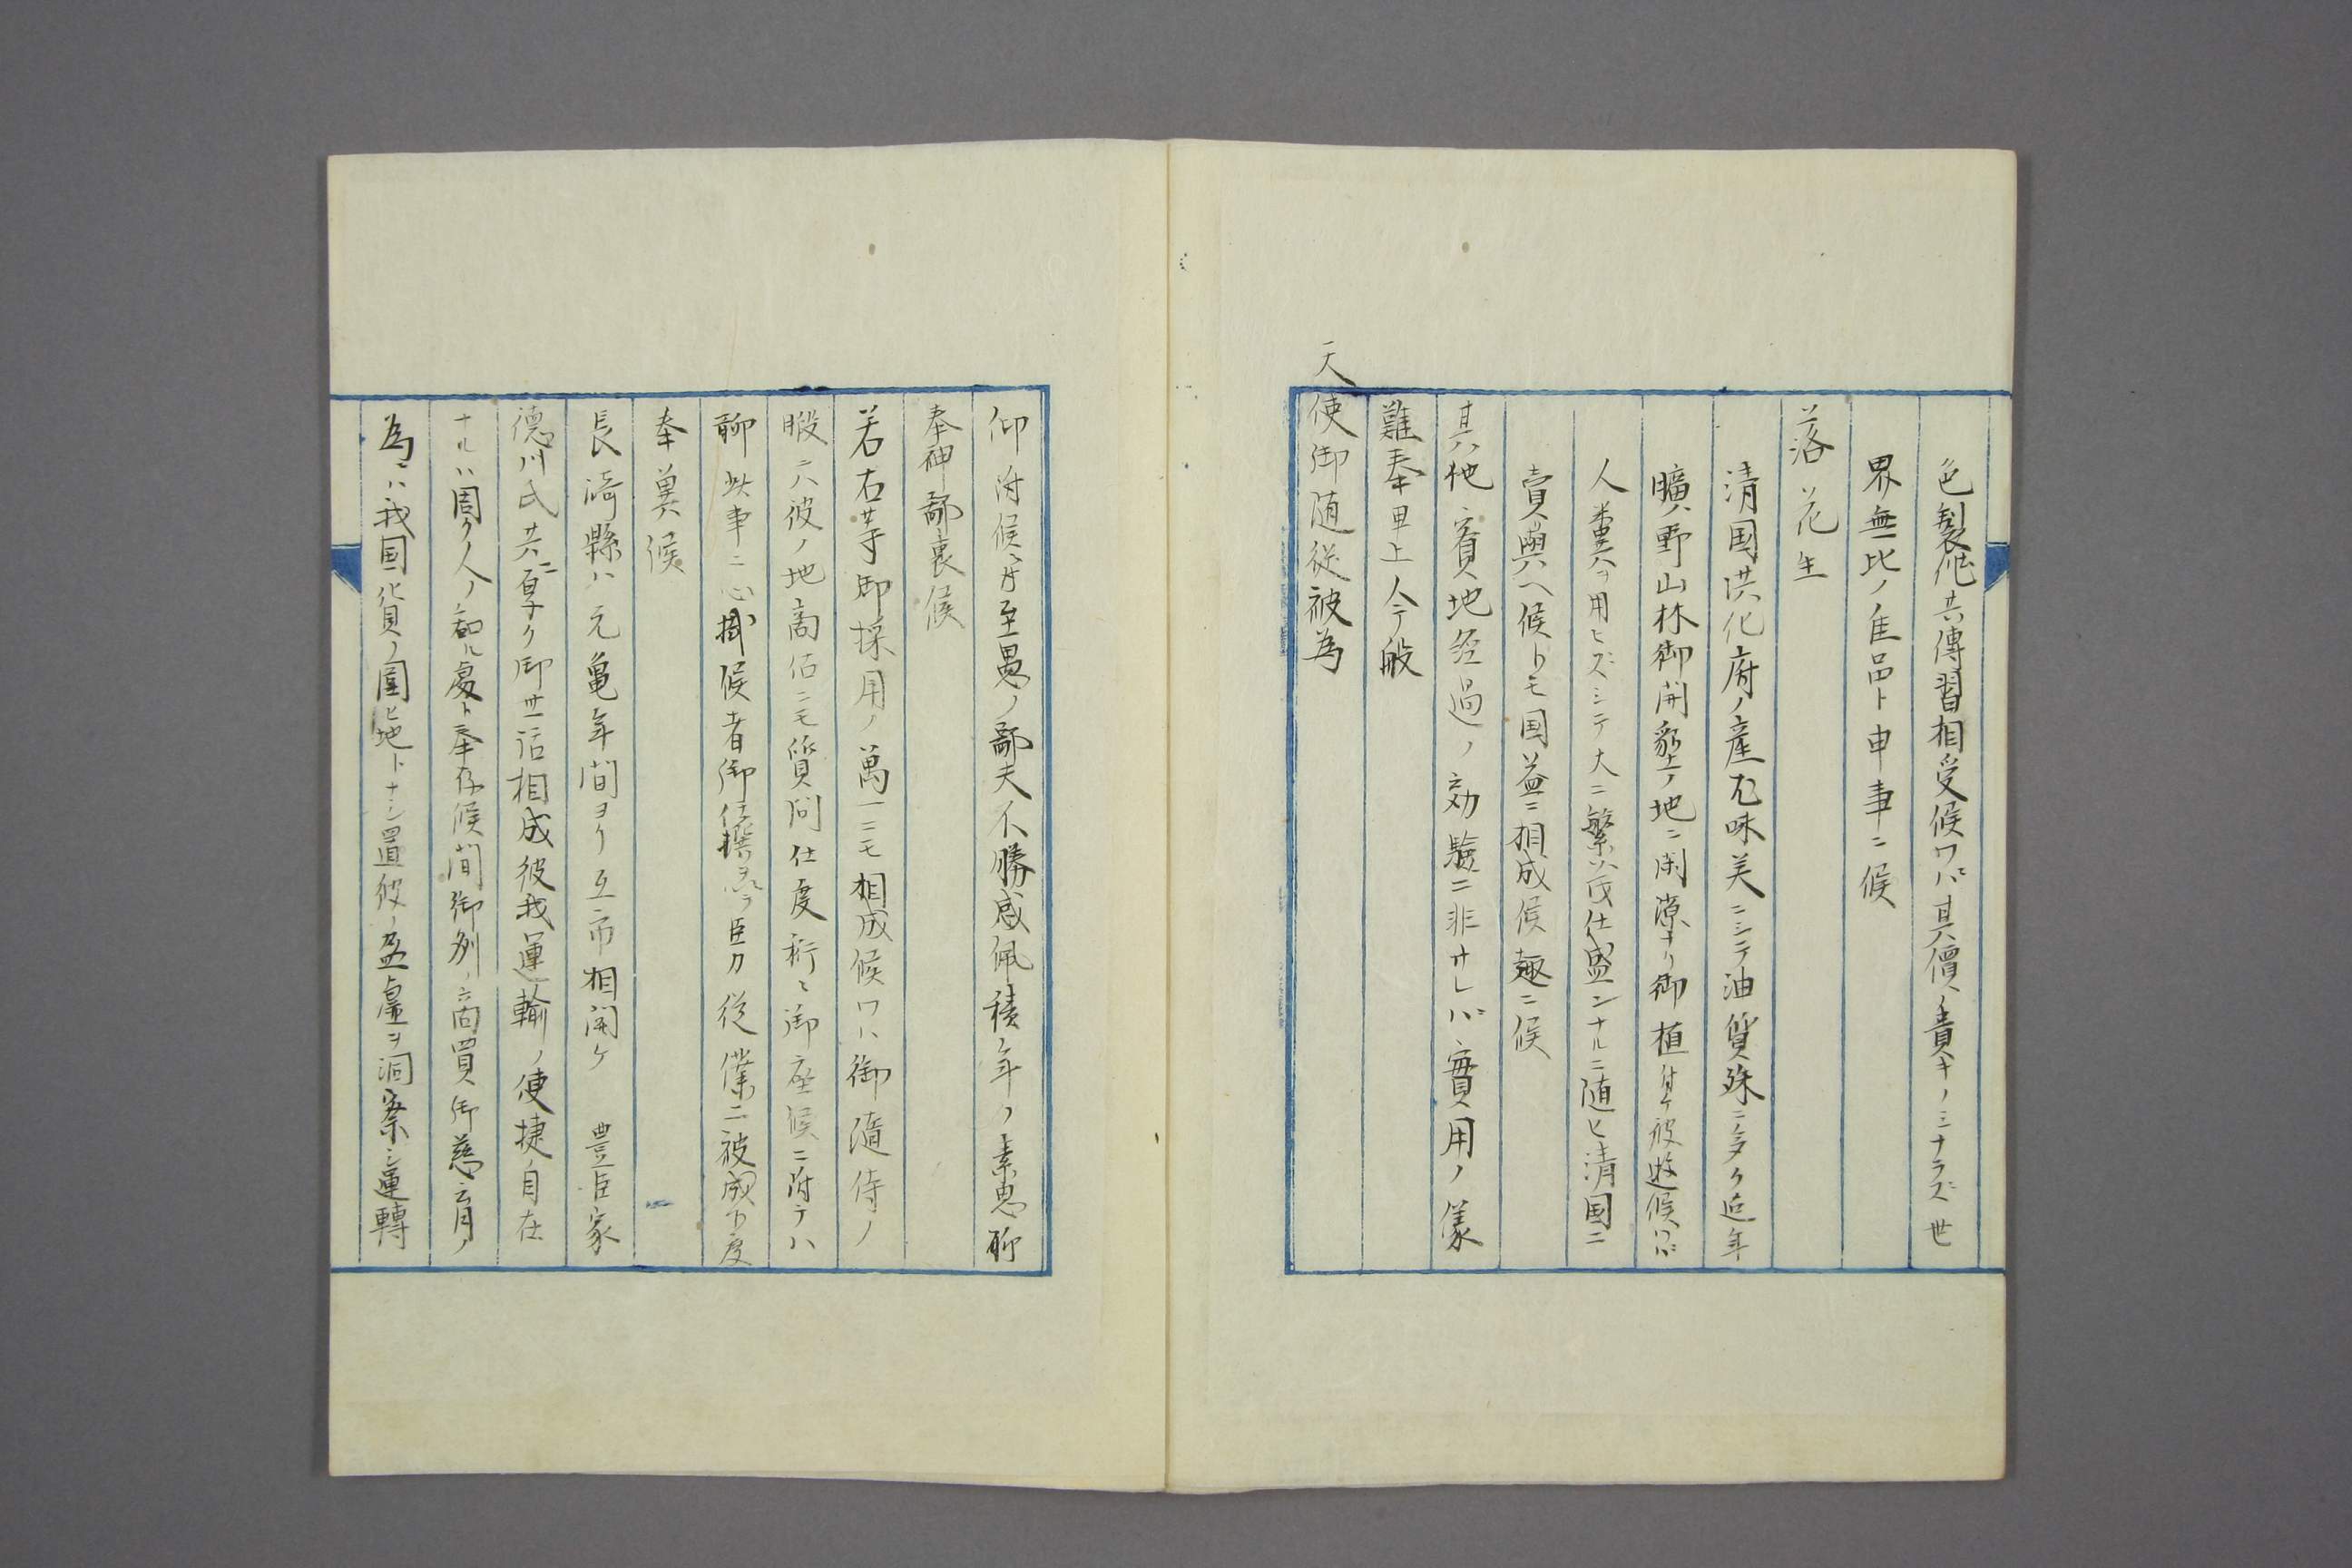 色製作共傳習相受候ワバ其價ノ貴キノミナラズ世
界無比ノ佳品ト申事ニ候
落花生
清国洪化府ノ産尤味美ニシテ油質殊ニ多ク近年
曠野山林御開墾ノ地ニ閑隙ナリ御植付ケ被遊候ハバ
人糞ヲ用ヒズシテ大ニ繁茂仕盛ンナルニ随ヒ清国ニ
賣與ヘ候トモ国益ニ相成候趣ニ候
其他賓地経過ノ効驗ニ非サレバ實用ノ儀
難奉申上今般
天使御随従被為
仰付候ハ至愚ノ鄙夫不勝感佩積年ノ素思聊
奉神鄙裏候
若右等御採用ノ萬一ニモ相成候ワハ御隨侍ノ
暇ニハ彼ノ地商估ニモ質問仕度存ニ御座候ニ附テハ
聊此事ニ心掛候者御撰ヲ臣カ從僕ニ被成下度
奉糞候
長﨑縣ハ元亀年間ヨリ互市相開ケ 豊臣家
德川氏共ニ厚ク御世話相成彼我運輸ノ便捷自在
ナルハ周ク人ノ知ル處ト奉存候間御別ノ商買御慈育ノ
為ニハ我国化貨ノ圍ヒ地トナシ置彼ノ盈虚ヲ洞察シ運轉